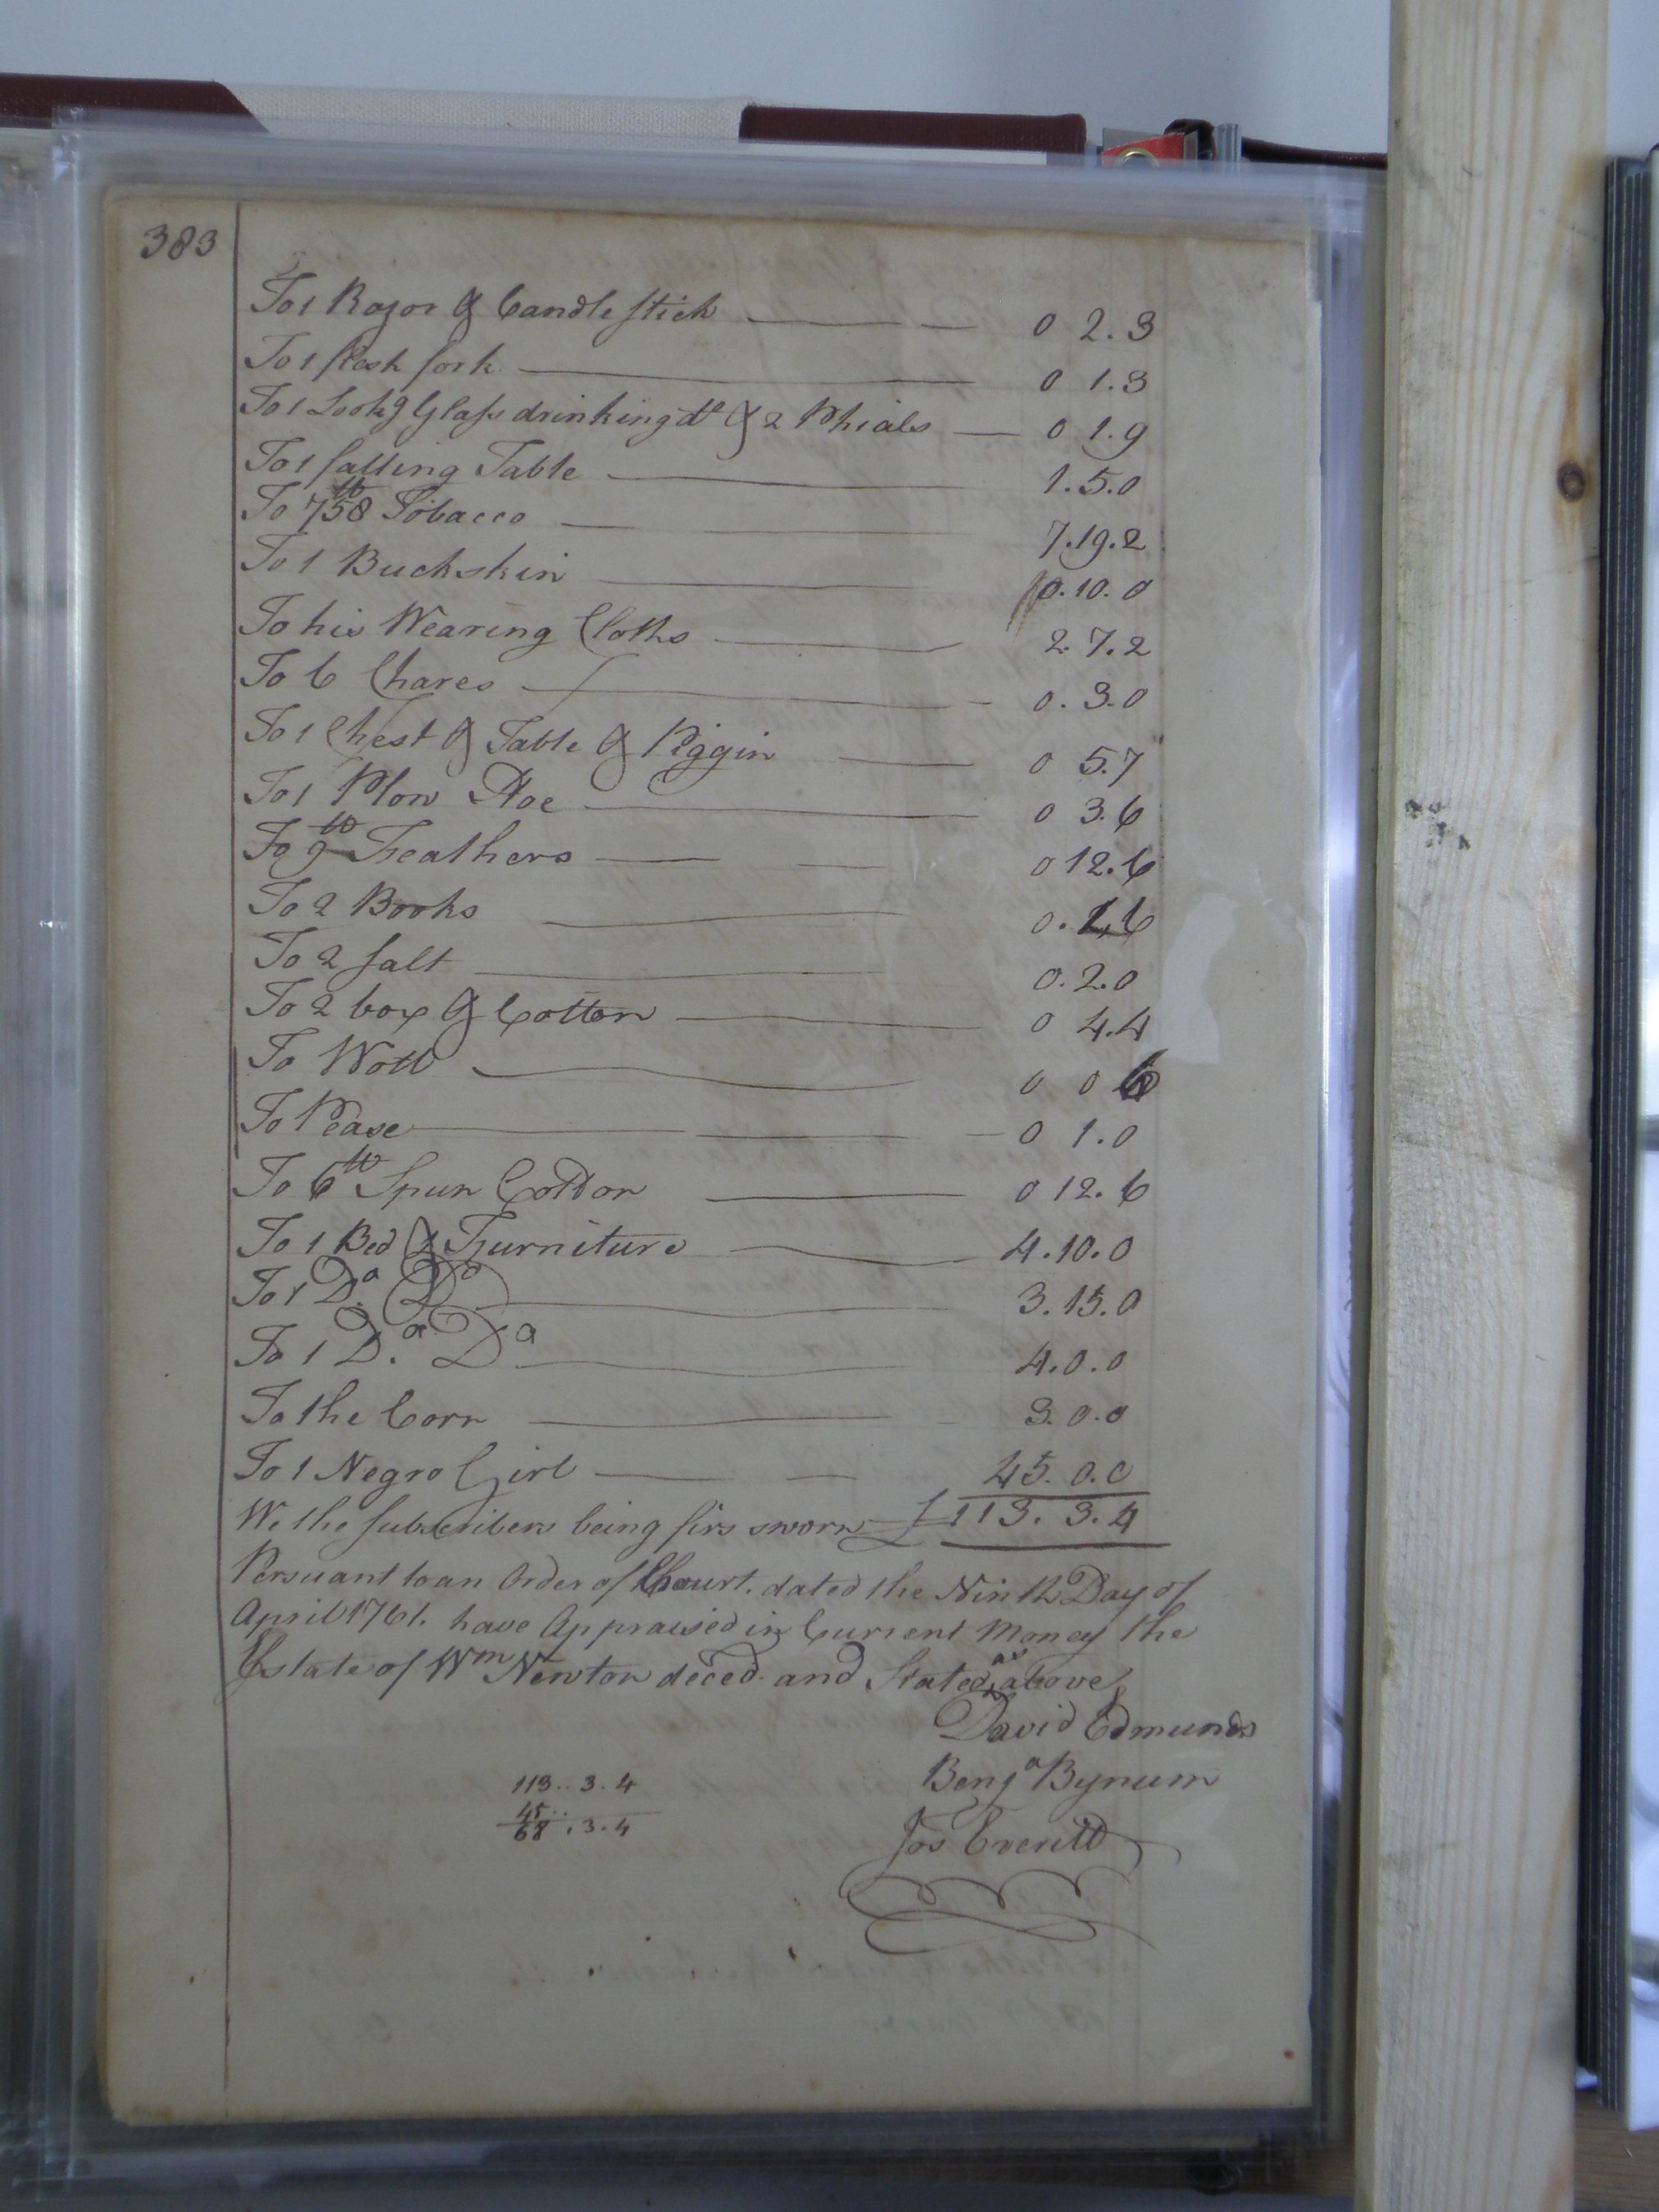 383
To 1 Razor & Candle stick 0 2.3
To 1 flesh fork 0 1.3
To 1 Lookg Glass drinking do & 2 Phials 0 1.9
To 1 falling Table 1.5.0
To 758 lb Tobacco 7.19.2
To 1 Buckskin 0.10.0
To his Wearing Cloths 2.7.2
To 6 Chares 0.3.0
To 1 Chest & Table & Piggin 0 5.7
To 1 Plow Hoe 0 3.6
To 9 lb Feathers 0 12.6
To 2 Books 0.1.6
To 2 salt 0.2.0
To 2 box & Cotton 0 4.4
To Woll 0 0 6
To Pease 0 1.0
To 6 lb Spun Cotton 0 12.6
To 1 Bed & Furniture 4.10.0
To 1 Do. Do 3.15.0
To 1 Do. Do 4.0.0
To the Corn 3.0.0
To 1 Negro Girl 45.0.0
We the subscribers being firs sworn £113.3.4
Persuant to an Order of Court. dated the Ninth Day of
April 1761. have Appraised in Current Money the
Estate of Wm Newton deced. and Stated as above
David Edmunds
Benja Bynum
113..3.4
Jos Everitt
45..
68.3.4